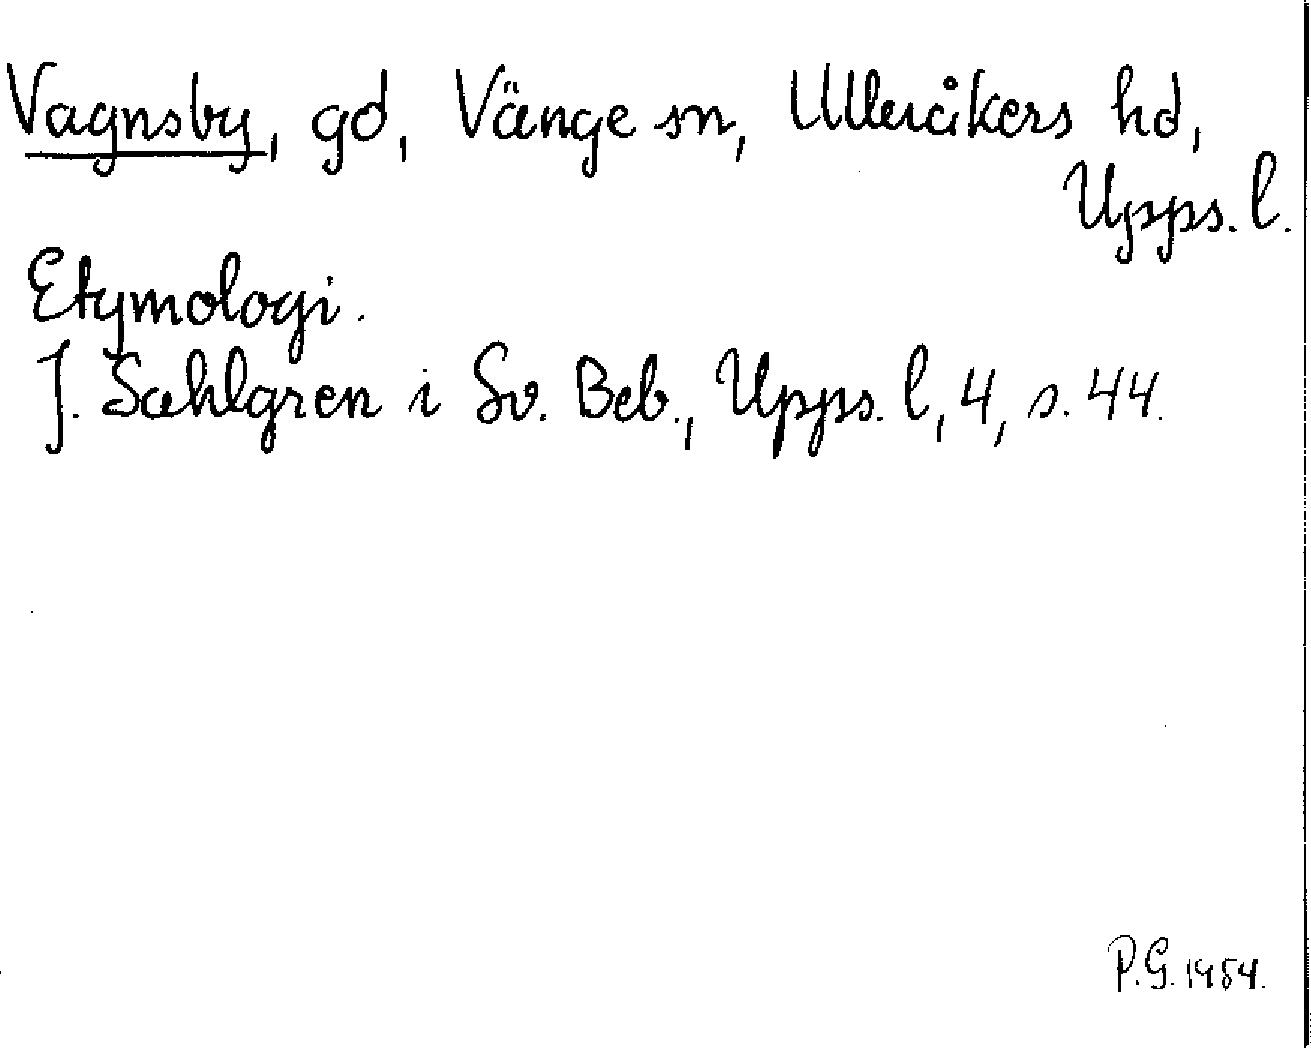 Vagnsby, gd, Vänge sn, Ulleråkers hd,
Upps. l.
Etymologi.
J. Sahlgren i Sv. Beb., Upps. l, 4, s. 44.
P.G. 1954.